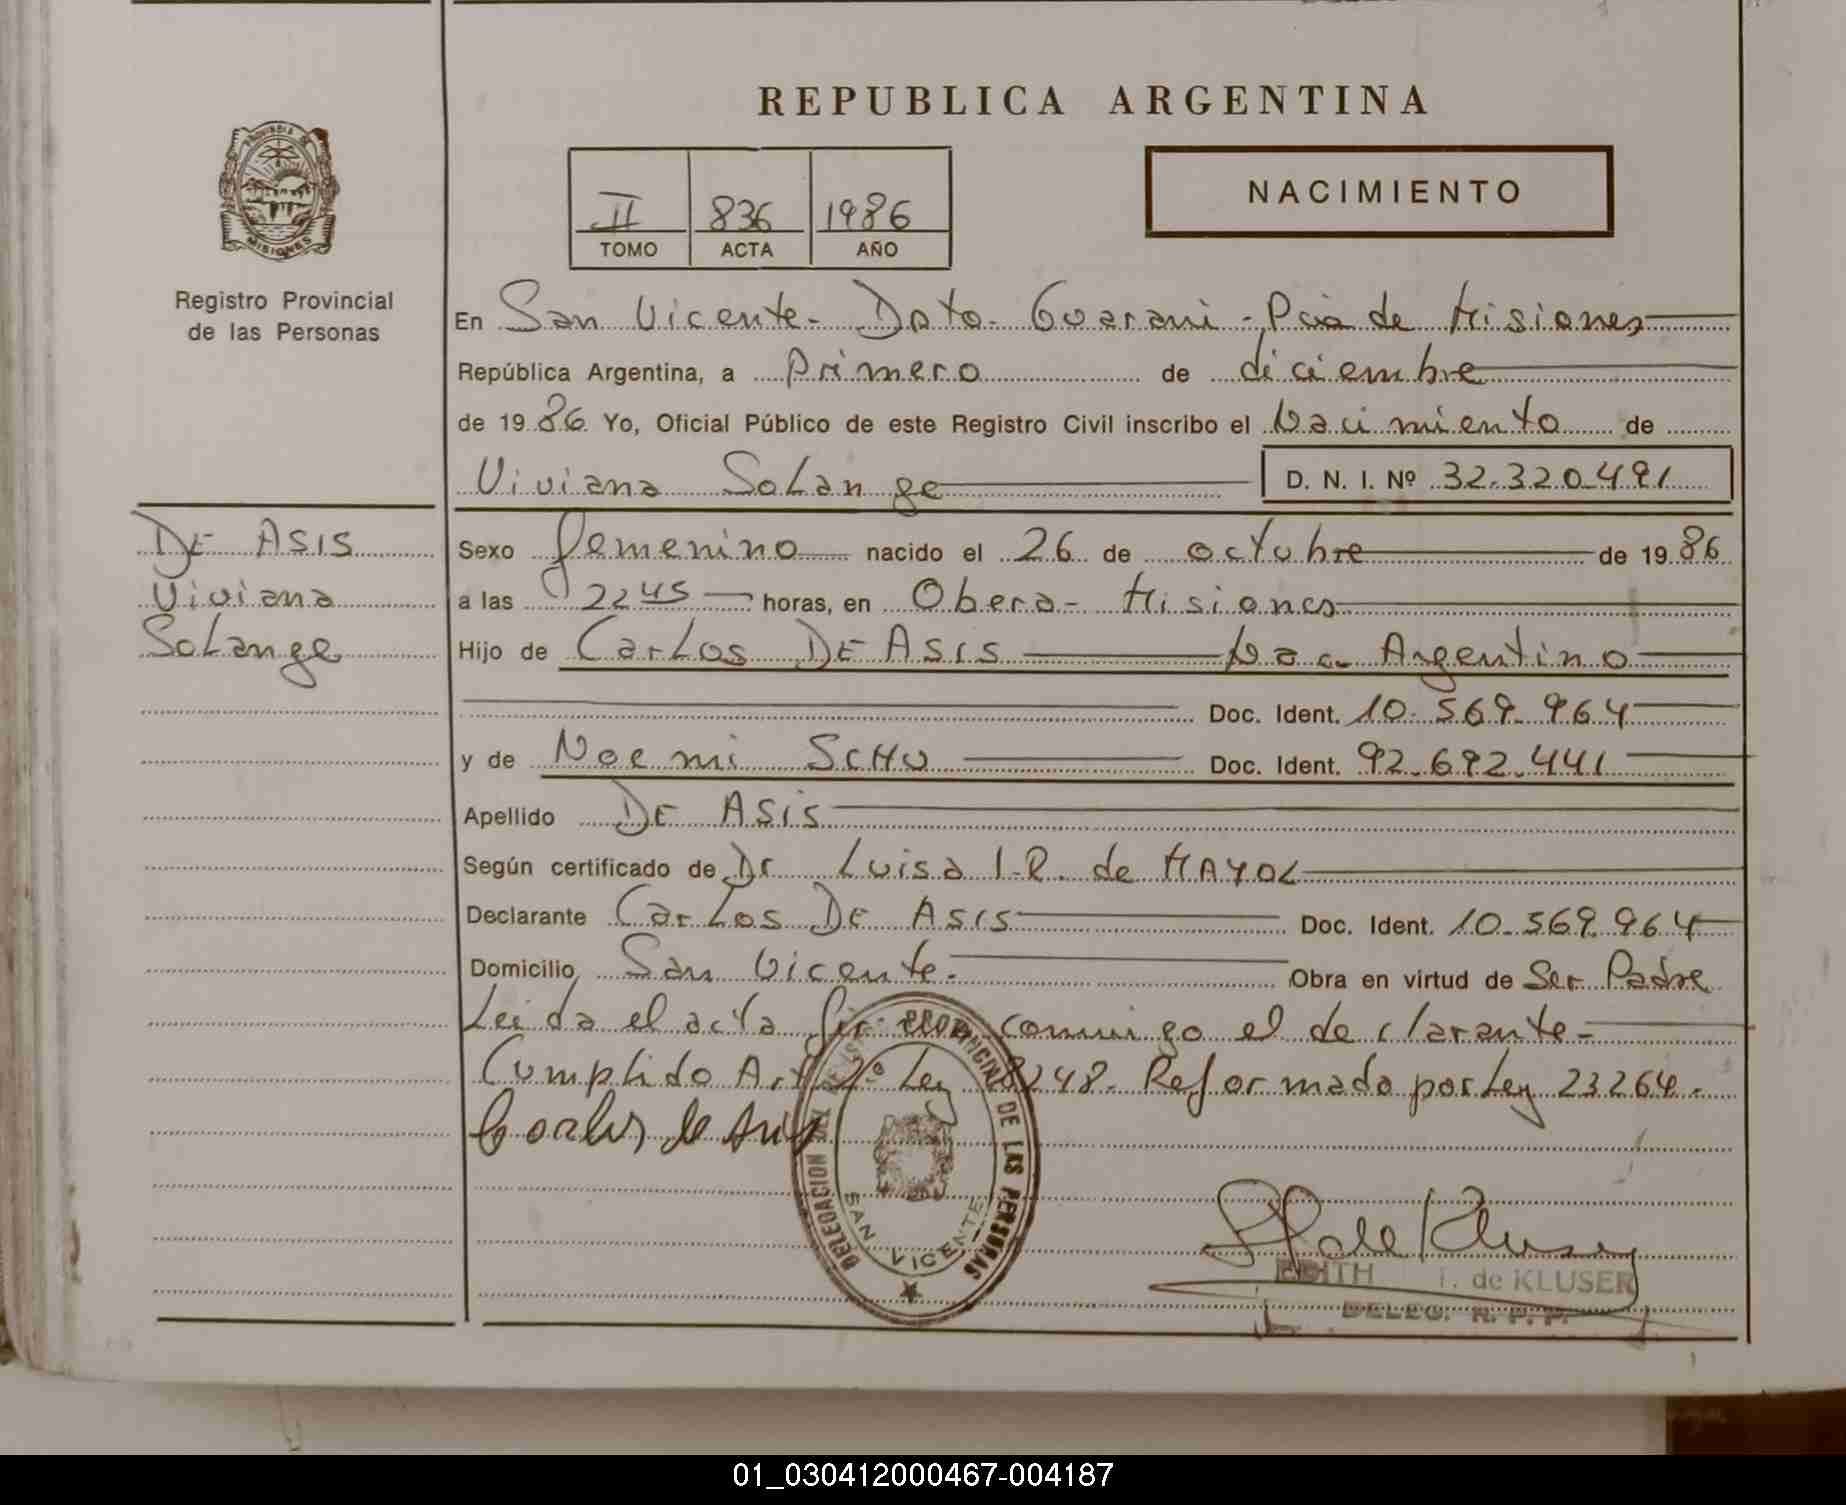 REPUBLICA ARGENTINA
PROVINCIA DE
MISIONES
Registro Provincial
de las Personas
II 836 1986
TOMO ACTA AÑO
NACIMIENTO
En San Vicente - Dpto. Guarani - Pcia de Misiones
República Argentina, a Primero de diciembre
de 1986 Yo, Oficial Público de este Registro Civil inscribo el Nacimiento de
Viviana Solange D. N. I. Nº 32.320.491
DE ASIS
Viviana
Solange
Sexo femenino nacido el 26 de octubre de 1986
a las 22 45 horas, en Obera - Misiones
Hijo de Carlos DE ASIS Nac. Argentino
Doc. Ident. 10.569.964
y de Noemi SCHU Doc. Ident. 92.692.441
Apellido DE ASIS
Según certificado de Dr Luisa I.R. de MAYOL
Declarante Carlos DE ASIS Doc. Ident. 10.569.964
Domicilio San Vicente. Obra en virtud de Ser Padre
Leida el acta conmigo el declarante -
Cumplido Art 2º Ley 8248. Reformado por Ley 23264.
Carlos de Asis
DELEGACION DEL REGISTRO PROVINCIAL DE LAS PERSONAS
SAN VICENTE
EDITH de KLUSER
DELEG. R. P. P.
01_030412000467-004187